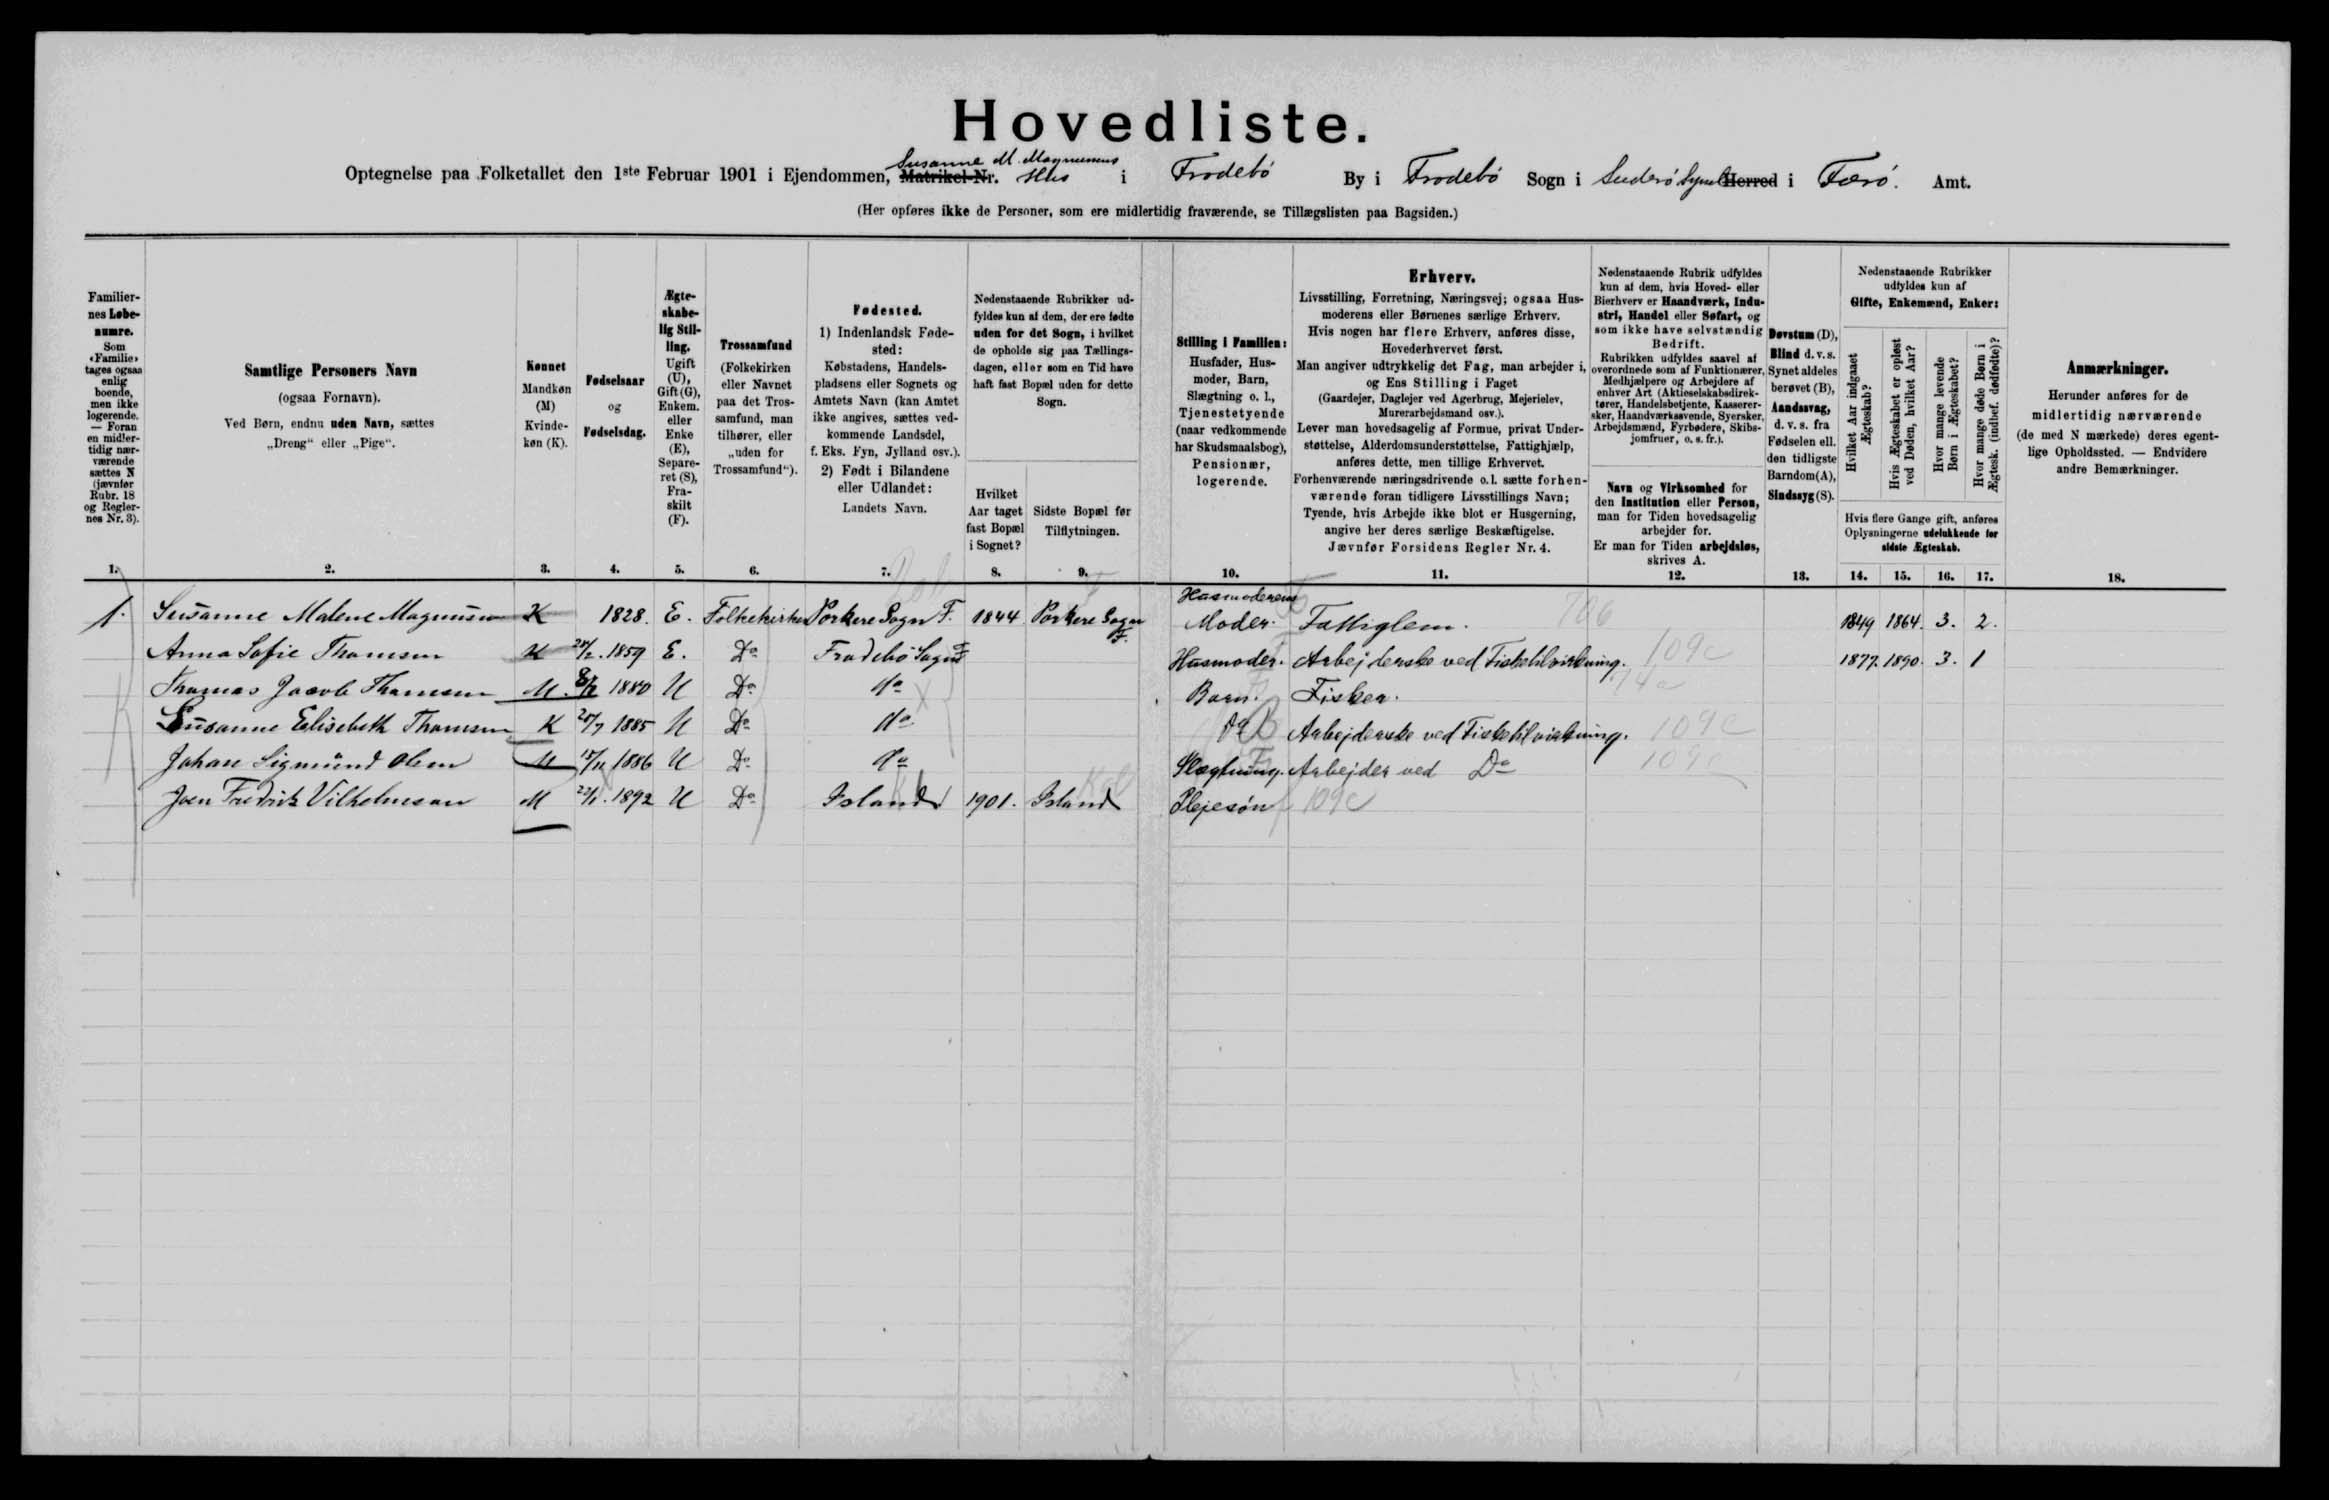 Hovedliste.
Optegnelse paa Folketallet den 1ste Februar 1901 i Ejendommen, Matrikel-Nr. Susanne M. Magnusens Hus i Frodebö By i Frodebö Sogn i Suderö Syssel Herred i Færö. Amt.
(Her opføres ikke de Personer, som ere midlertidig fraværende, se Tillægslisten paa Bagsiden.)
Familiernes Løbenumre.
Som «Familie» tages ogsaa enlig boende, men ikke logerende. — Foran en midlertidig nærværende sættes N (jævnfør Rubr. 18 og Reglernes Nr. 3).
Samtlige Personers Navn
(ogsaa Fornavn).
Ved Børn, endnu uden Navn, sættes
„Dreng“ eller „Pige“.
Kønnet
Mandkøn (M)
Kvindekøn (K).
Fødselsaar
og
Fødselsdag.
Ægteskabelig Stilling.
Ugift (U), Gift (G), Enkem. eller Enke (E), Separeret (S), Fraskilt (F).
Trossamfund
(Folkekirken eller Navnet paa det Trossamfund, man tilhører, eller „uden for Trossamfund“).
Fødested.
1) Indenlandsk Fødested:
Købstadens, Handelspladsens eller Sognets og Amtets Navn (kan Amtet ikke angives, sættes vedkommende Landsdel, f. Eks. Fyn, Jylland osv.).
2) Født i Bilandene eller Udlandet:
Landets Navn.
Nedenstaaende Rubrikker udfyldes kun af dem, der ere fødte uden for det Sogn, i hvilket de opholde sig paa Tællingsdagen, eller som en Tid have haft fast Bopæl uden for dette Sogn.
Hvilket Aar taget fast Bopæl i Sognet?
Sidste Bopæl før Tilflytningen.
Stilling i Familien:
Husfader, Husmoder, Barn, Slægtning o. l., Tjenestetyende (naar vedkommende har Skudsmaalsbog), Pensionær, logerende.
Erhverv.
Livsstilling, Forretning, Næringsvej; ogsaa Husmoderens eller Børnenes særlige Erhverv.
Hvis nogen har flere Erhverv, anføres disse, Hovederhvervet først.
Man angiver udtrykkelig det Fag, man arbejder i, og Ens Stilling i Faget
(Gaardejer, Daglejer ved Agerbrug, Mejerielev, Murerarbejdsmand osv.).
Lever man hovedsagelig af Formue, privat Understøttelse, Alderdomsunderstøttelse, Fattighjælp, anføres dette, men tillige Erhvervet.
Forhenværende næringsdrivende o. l. sætte forhenværende foran tidligere Livsstillings Navn;
Tyende, hvis Arbejde ikke blot er Husgerning, angive her deres særlige Beskæftigelse.
Jævnfør Forsidens Regler Nr. 4.
Nedenstaaende Rubrik udfyldes kun af dem, hvis Hoved- eller Bierhverv er Haandværk, Industri, Handel eller Søfart, og som ikke have selvstændig Bedrift.
Rubrikken udfyldes saavel af overordnede som af Funktionærer, Medhjælpere og Arbejdere af enhver Art (Aktieselskabsdirektører, Handelsbetjente, Kasserersker, Haandværkssvende, Syersker, Arbejdsmænd, Fyrbødere, Skibsjomfruer, o. s. fr.).
Navn og Virksomhed for den Institution eller Person, man for Tiden hovedsagelig arbejder for.
Er man for Tiden arbejdsløs, skrives A.
Døvstum (D), Blind d. v. s. Synet aldeles berøvet (B), Aandssvag, d. v. s. fra Fødselen ell. den tidligste Barndom (A), Sindssyg (S).
Nedenstaaende Rubrikker udfyldes kun af
Gifte, Enkemænd, Enker:
Hvilket Aar indgaaet Ægteskab?
Hvis Ægteskabet er opløst ved Døden, hvilket Aar?
Hvor mange levende Børn i Ægteskabet?
Hvor mange døde Børn i Ægtesk. (indbef. dødfødte)?
Hvis flere Gange gift, anføres Oplysningerne udelukkende for sidste Ægteskab.
Anmærkninger.
Herunder anføres for de midlertidig nærværende (de med N mærkede) deres egentlige Opholdssted. — Endvidere andre Bemærkninger.
1. 2. 3. 4. 5. 6. 7. 8. 9. 10. 11. 12. 13. 14. 15. 16. 17. 18.
1. Susanne Malene Magnusen K 1828. E. Folkekirken Porkere Sogn F. 1844 Porkere Sogn F. Husmoderens Moder. Fattiglem. 706 1849 1864. 3. 2.
Anna Sofie Thomsen K 1859 E. Do Frodebö Sogn F Husmoder. Arbejderske ved Fisketilvirkning. 109c 1877. 1890. 3. 1
Thomas Jacob Thomsen M. 1880 U Do do Barn. Fisker.
Susanne Elisebeth Thomsen K 20/7 1885 U Do do do Arbejderske ved Fisketilvirkning. 109c
Johan Sigmünd Olsen M 15/11 1886 U Do do Slægtning. Arbejder ved Do 109c
Joen Fredrik Vilhelmsen M 22/1. 1892 U Do Island 1901. Island Plejesön 109c